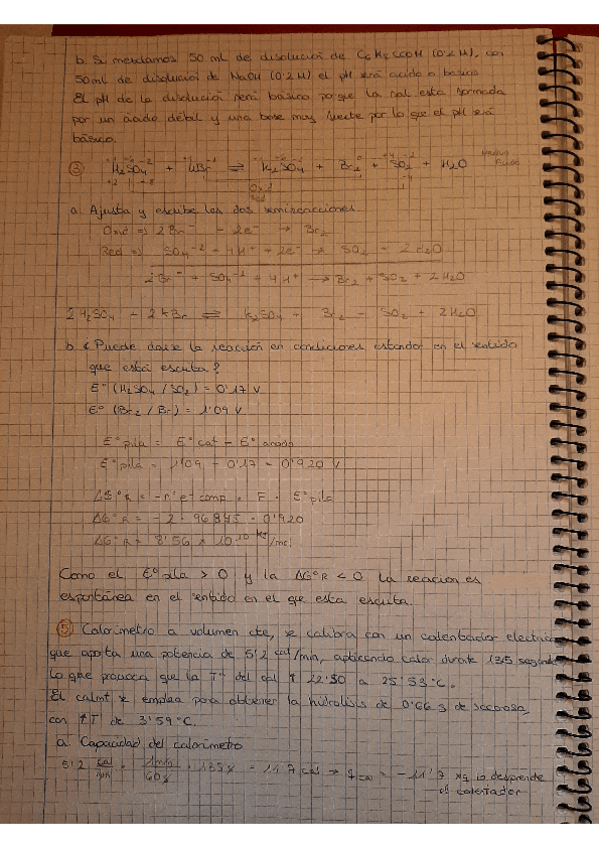 b. Si mezclamos 50 ml de disolución de C6H5COOH (0'2 M), con
50 ml de disolución de NaOH (0'2 M) el pH será acido o basico
El pH de la disolución será básico porque la sal esta formada
por un ácido débil y una base muy fuerte por lo que el pH será
básico.
③ H2SO4 + KBr ⇌ K2SO4 + Br2 + SO2 + H2O
a. Ajusta y escribe las dos semireacciones
Oxd => 2Br⁻ - 2e⁻ → Br2
Red => SO4⁻² + 4H⁺ + 2e⁻ → SO2 + 2H2O
2Br⁻ + SO4⁻² + 4H⁺ → Br2 + SO2 + 2H2O
2H2SO4 + 2KBr ⇌ K2SO4 + Br2 + SO2 + 2H2O
b. ¿Puede darse la reacción en condiciones estandar en el sentido
que está escrita?
E° (H2SO4 / SO2) = 0'17 V
E° (Br2 / Br) = 1'09 V
E° pila = E° cat - E° anodo
E° pila = 1'09 - 0'17 = 0'920 V
ΔG°R = -nº e⁻ comp · F · E° pila
ΔG°R = -2 · 96845 · 0'920
ΔG°R = 8'56 x 10
Como el E° pila > 0 y la ΔG°R < 0 la reacción es
espontánea en el sentido en el que esta escrita.
⑤ Calorimetro a volumen cte, se calibra con un calentador electrico
que aporta una potencia de 5'2 cal/min, aplicando calor durante 135 segundos
lo que provoca que la Tª del cal ↑ 22'50 a 25'53 °C.
El calmt se emplea para obtener la hidrolisis de 0'66 g de sacarosa,
con ↑T de 3'59 °C.
a. Capacidad del calorimetro
5'2 cal/min · 1min/60s · 135s = 11'7 cal → q cal = -11'7 xq lo desprende
el calentador